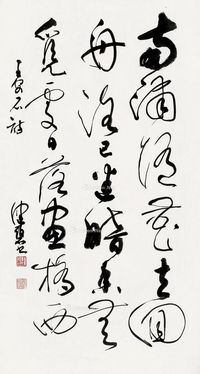 南浦随花去回
舟路已迷暗香无
觅处日落画桥西
王安石诗